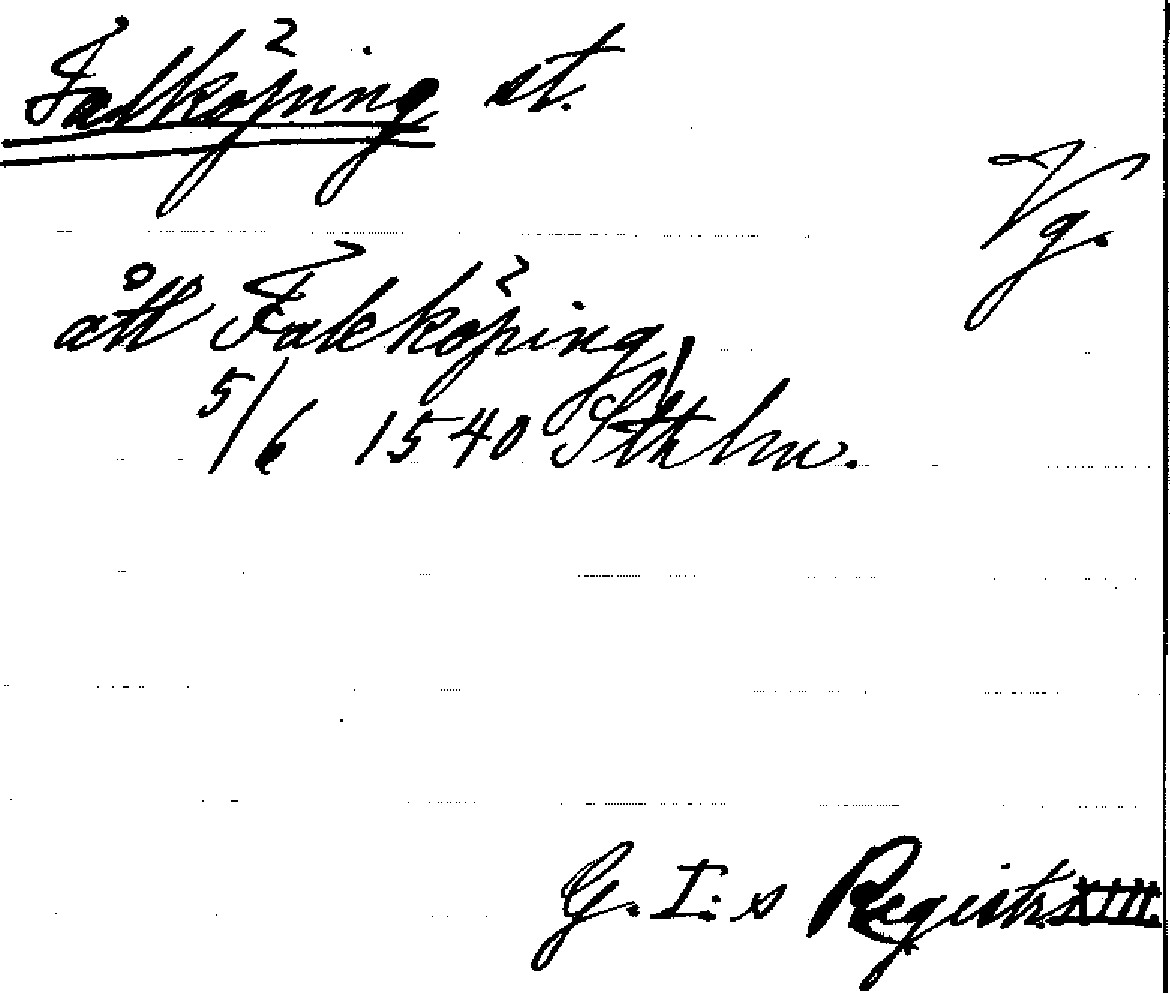 Falköping st.
Vg.
att Faleköping
5/6 1540 Sthlm.
G. I:s Registr. XIII.